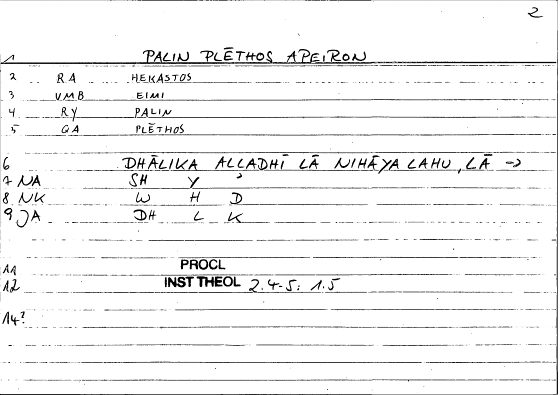 2
1 PALIN PLĒTHOS APEIRON
2 RA HEKASTOS
3 VMB EIMI
4 RY PALIN
5 QA PLĒTHOS
6 DHĀLIKA ALLADHĪ LĀ NIHĀYA LAHU, LĀ →
7 NA SH Y ʾ
8 NK W H D
9 JA DH L K
11 PROCL
12 INST THEOL 2.4-5: 1.5
14?